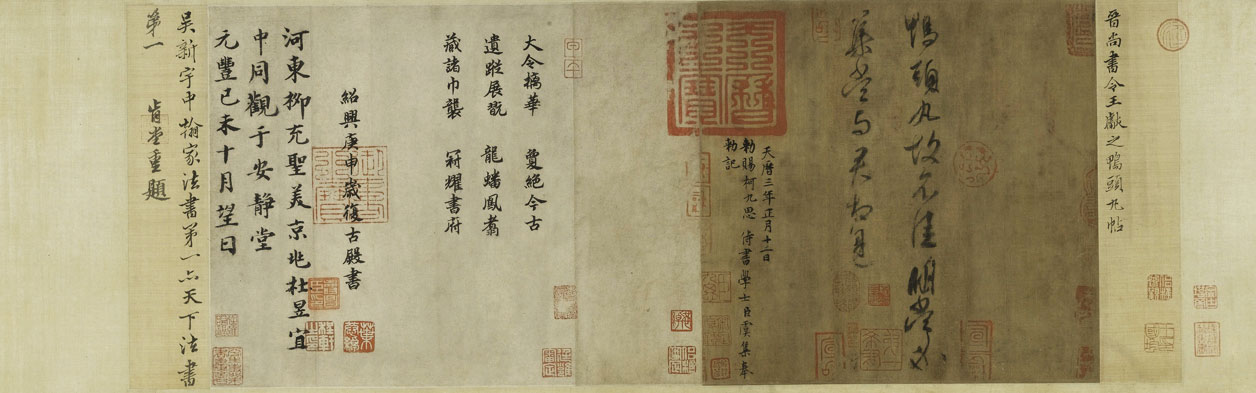 晉尚書令王獻之鴨頭丸帖
鴨頭丸故不佳明當必
集當與君相見
天曆三年正月十二日
勅賜柯九思侍書學士臣虞集奉
勅記
大令摛華 夐絕今古
遺蹤展翫 龍蟠鳳翥
藏諸巾襲 冠耀書府
紹興庚申歲復古殿書
河東柳充聖美京兆杜昱宜
中同觀于安靜堂
元豐己未十月望日
吳新宇中翰家法書第一亦天下法書
第一 肯堂重題